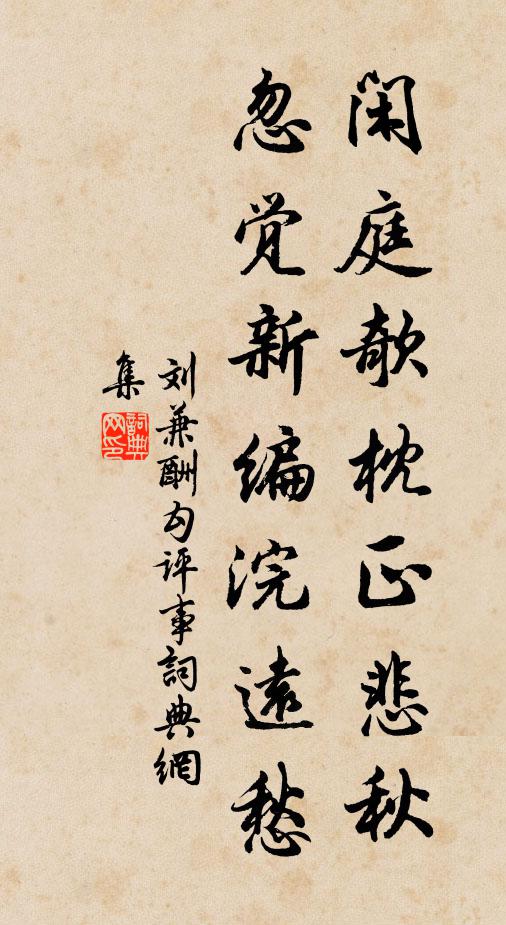 闲庭欹枕正悲秋
忽觉新编浣远愁
刘兼酬勾评事詞典網
集
詞典
网印